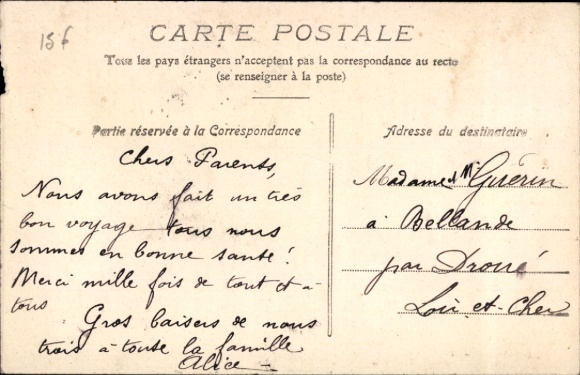 15f
CARTE POSTALE
Tous les pays étrangers n'acceptent pas la correspondance au recto
(se renseigner à la poste)
Partie réservée à la Correspondance
Chers Parents,
Nous avons fait un très
bon voyage tous nous
sommes en bonne santé!
Merci mille fois de tout et à
tous
Gros baisers de nous
trois à toute la famille
Alice
Adresse du destinataire
Madame et Mr Guérin
à Bellande
par Droué
Loir et Cher